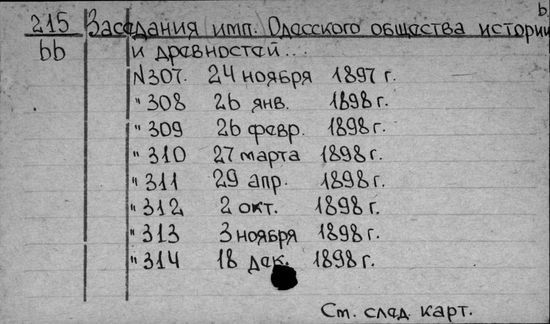 b
215 Заседания имп. Одесского общества истории
bb и древностей...
N307. 24 ноября 1897 г.
" 308 26 янв. 1898 г.
" 309 26 февр. 1898 г.
" 310 27 марта 1898 г.
" 311 29 апр. 1898 г.
" 312 2 окт. 1898 г.
" 313 3 ноября 1898 г.
" 314 18 дек. 1898 г.
См. след. карт.